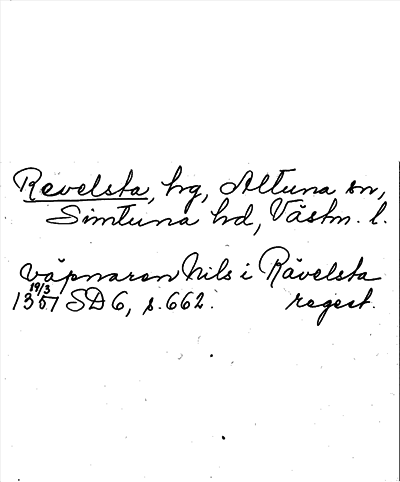 Revelsta, hg, Altuna sn,
Simtuna hd, Västm. l.
väpnaren Nils i Rävelsta
19/3
1351 SD 6, s. 662. regest.